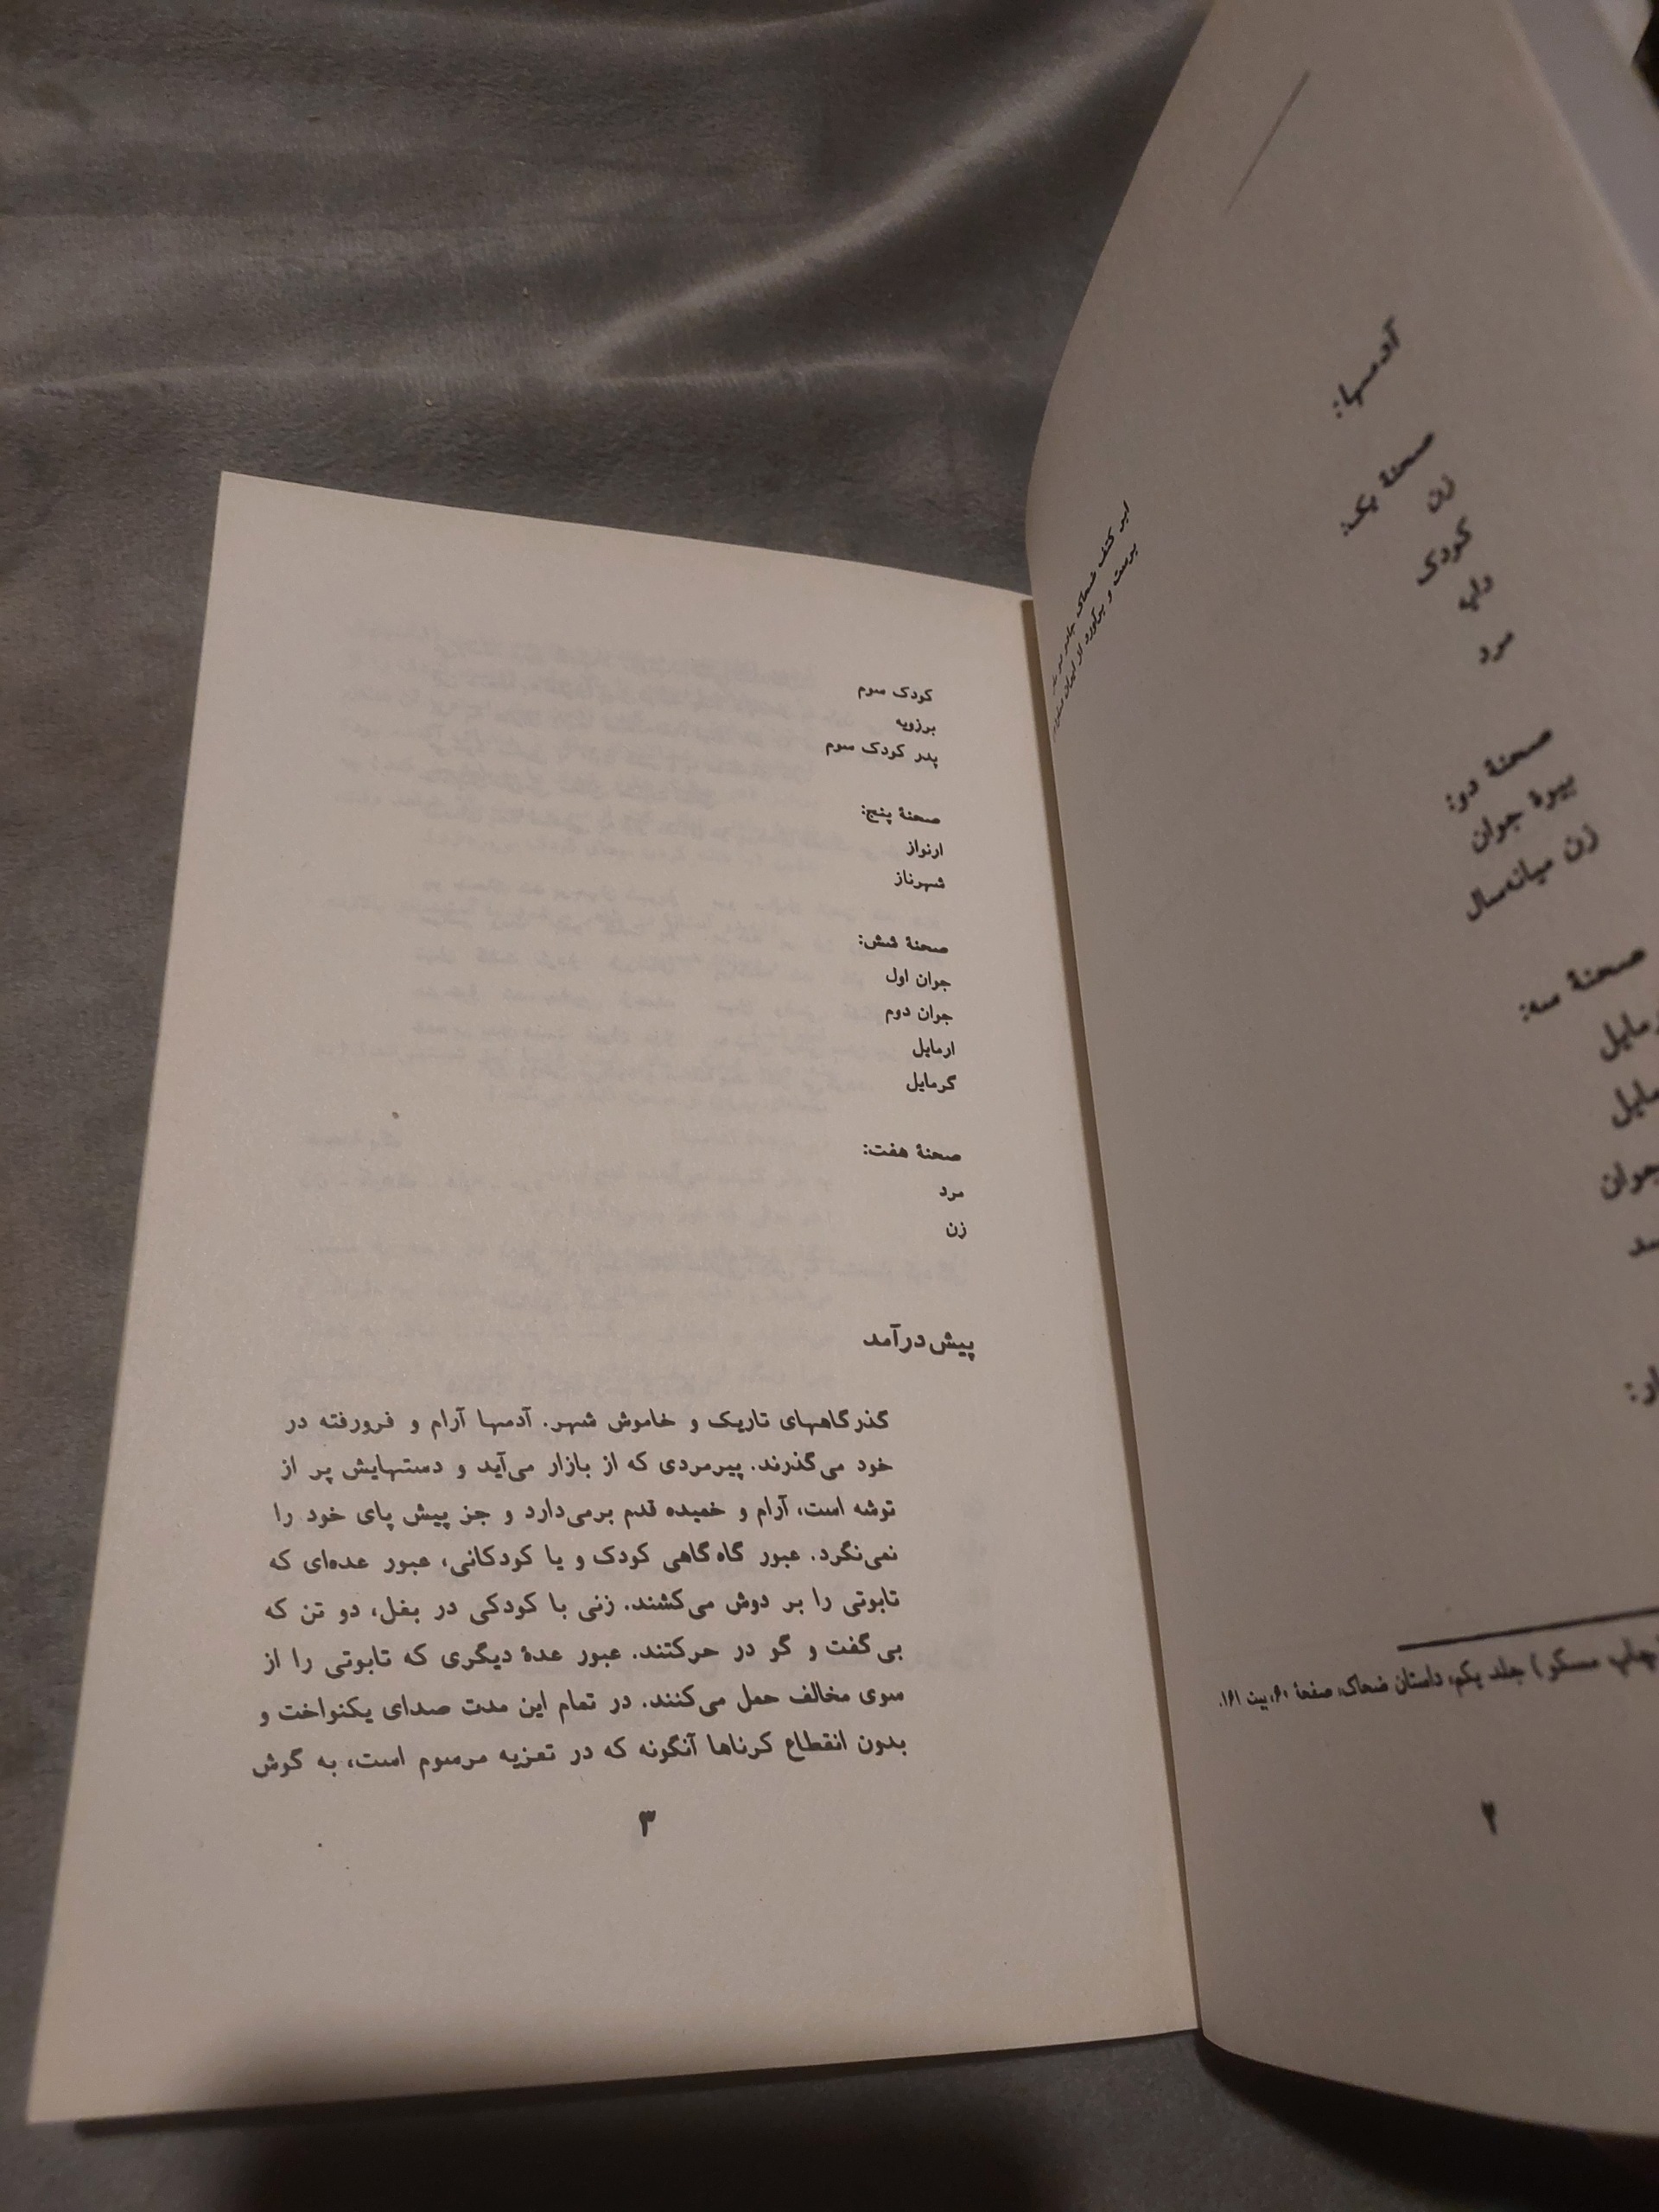 آدمها:
صحنهٔ یک:
زن
کودک
دایه
مرد
صحنهٔ دو:
بیوهٔ جوان
زن میانه‌سال
صحنهٔ سه:
چاپ مسکو) جلد یکم، داستان ضحاک، صفحهٔ ۶۰، بیت ۱۶۱.
۲
کودک سوم
برزویه
پدر کودک سوم
صحنهٔ پنج:
ارنواز
شهرناز
صحنهٔ شش:
جوان اول
جوان دوم
ارمایل
گرمایل
صحنهٔ هفت:
مرد
زن
پیش‌درآمد
گذرگاههای تاریک و خاموش شهر. آدمها آرام و فرورفته در
خود می‌گذرند. پیرمردی که از بازار می‌آید و دستهایش پر از
توشه است، آرام و خمیده قدم برمی‌دارد و جز پیش پای خود را
نمی‌نگرد. عبور گاه‌گاهی کودک و یا کودکانی، عبور عده‌ای که
تابوتی را بر دوش می‌کشند. زنی با کودکی در بغل، دو تن که
بی‌گفت و گو در حرکتند. عبور عدهٔ دیگری که تابوتی را از
سوی مخالف حمل می‌کنند. در تمام این مدت صدای یکنواخت و
بدون انقطاع کرناها آنگونه که در تعزیه مرسوم است، به گوش
۳